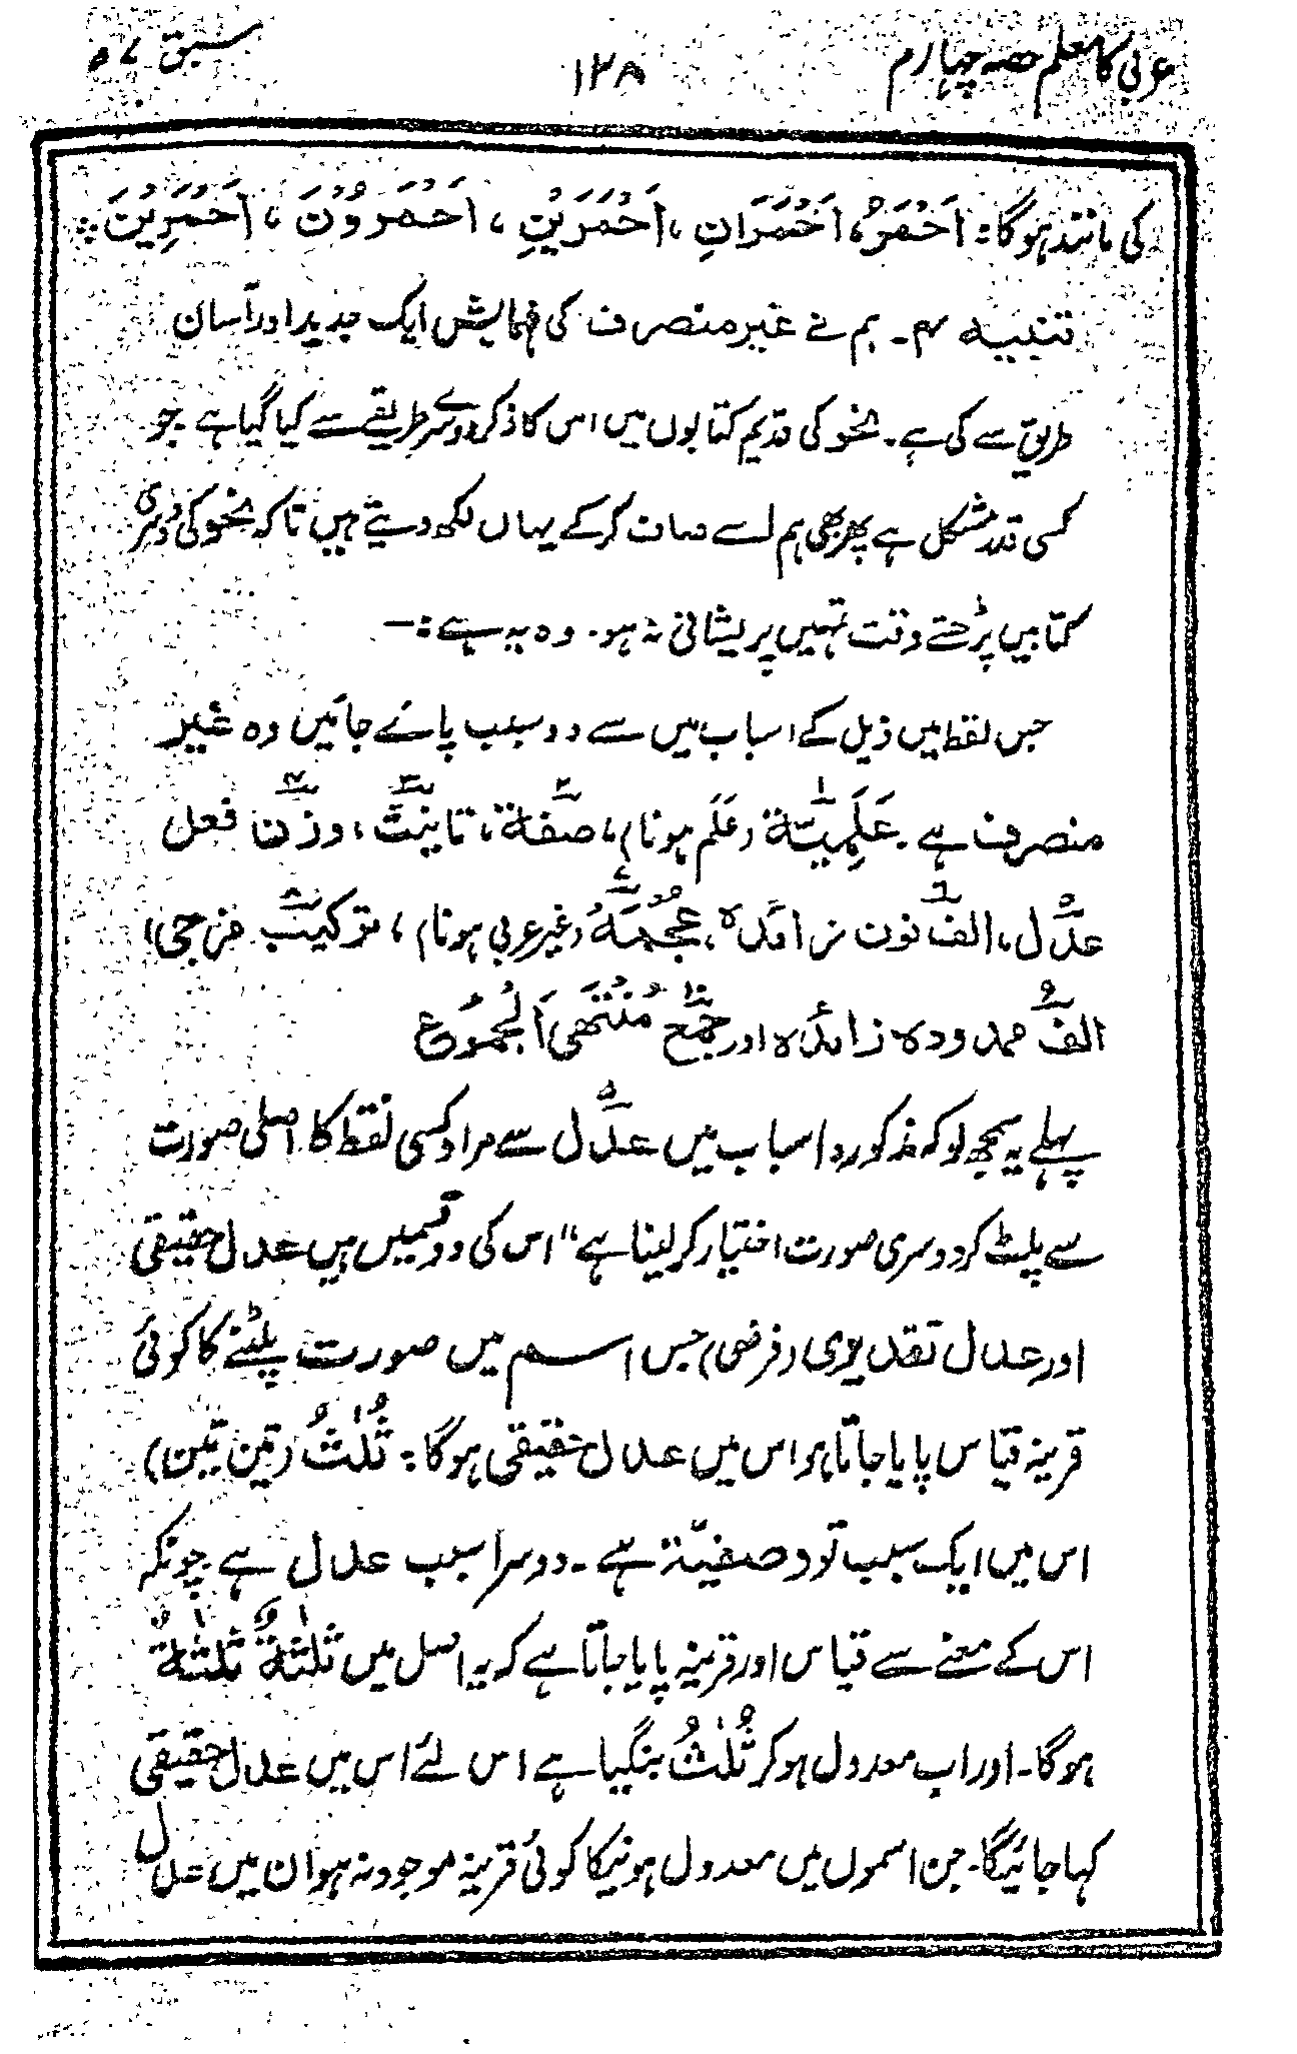 عربی کا معلم حصہ چہارم
۱۳۸
سبق ۵۷
کی مانند ہوگا: اَحْمَرُ، اَحْمَرَانِ، اَحْمَرَيْنِ، اَحْمَرُوْنَ، اَحْمَرِيْنَ ؞
تنبیہ ۴۔ ہم نے غیر منصرف کی فہمایش ایک جدید اور آسان
طریق سے کی ہے۔ نحو کی قدیم کتابوں میں اس کا ذکر دوسرے طریقے سے کیا گیا ہے جو
کسی قدر مشکل ہے پھر بھی ہم اسے صاف کرکے یہاں لکھ دیتے ہیں تاکہ نحو کی دوسری
کتابیں پڑھتے وقت تمہیں پریشانی نہ ہو۔ وہ یہ ہے:—
جس لفظ میں ذیل کے اسباب میں سے دو سبب پائے جائیں وہ غیر
منصرف ہے۔ عَلَمِيَّة۱ (عَلَم ہونا)، صفة۲، تانیث۳، وزن فعل۴
عدل۵، الف نون زائدہ۶، عُجْمَةُ۷ (غیر عربی ہونا)، ترکیب۸ مزجی،
الف۹ ممدودہ زائدہ اور جمع۱۰ مُنْتَهَى الْجُمُوْع
پہلے یہ سمجھ لو کہ مذکورہ اسباب میں عدل۵ سے مراد کسی لفظ کا اصلی صورت
سے پلٹ کر دوسری صورت اختیار کر لینا ہے" اس کی دو قسمیں ہیں عدل حقیقی
اور عدل تقدیری (فرضی) جس اسم میں صورت پلٹنے کا کوئی
قرینہ قیاس پایا جاتا ہو اس میں عدل حقیقی ہوگا: ثُلٰثُ (تین تین)
اس میں ایک سبب تو وصفیّة ہے۔ دوسرا سبب عدل ہے چونکہ
اس کے معنے سے قیاس اور قرینہ پایا جاتا ہے کہ یہ اصل میں ثلٰثةٌ ثلٰثةٌ
ہوگا۔ اور اب معدول ہوکر ثُلٰثُ بنگیا ہے اس لئے اس میں عدل حقیقی
کہا جائیگا۔ جن اسموں میں معدول ہونیکا کوئی قرینہ موجود نہ ہو ان میں عدل